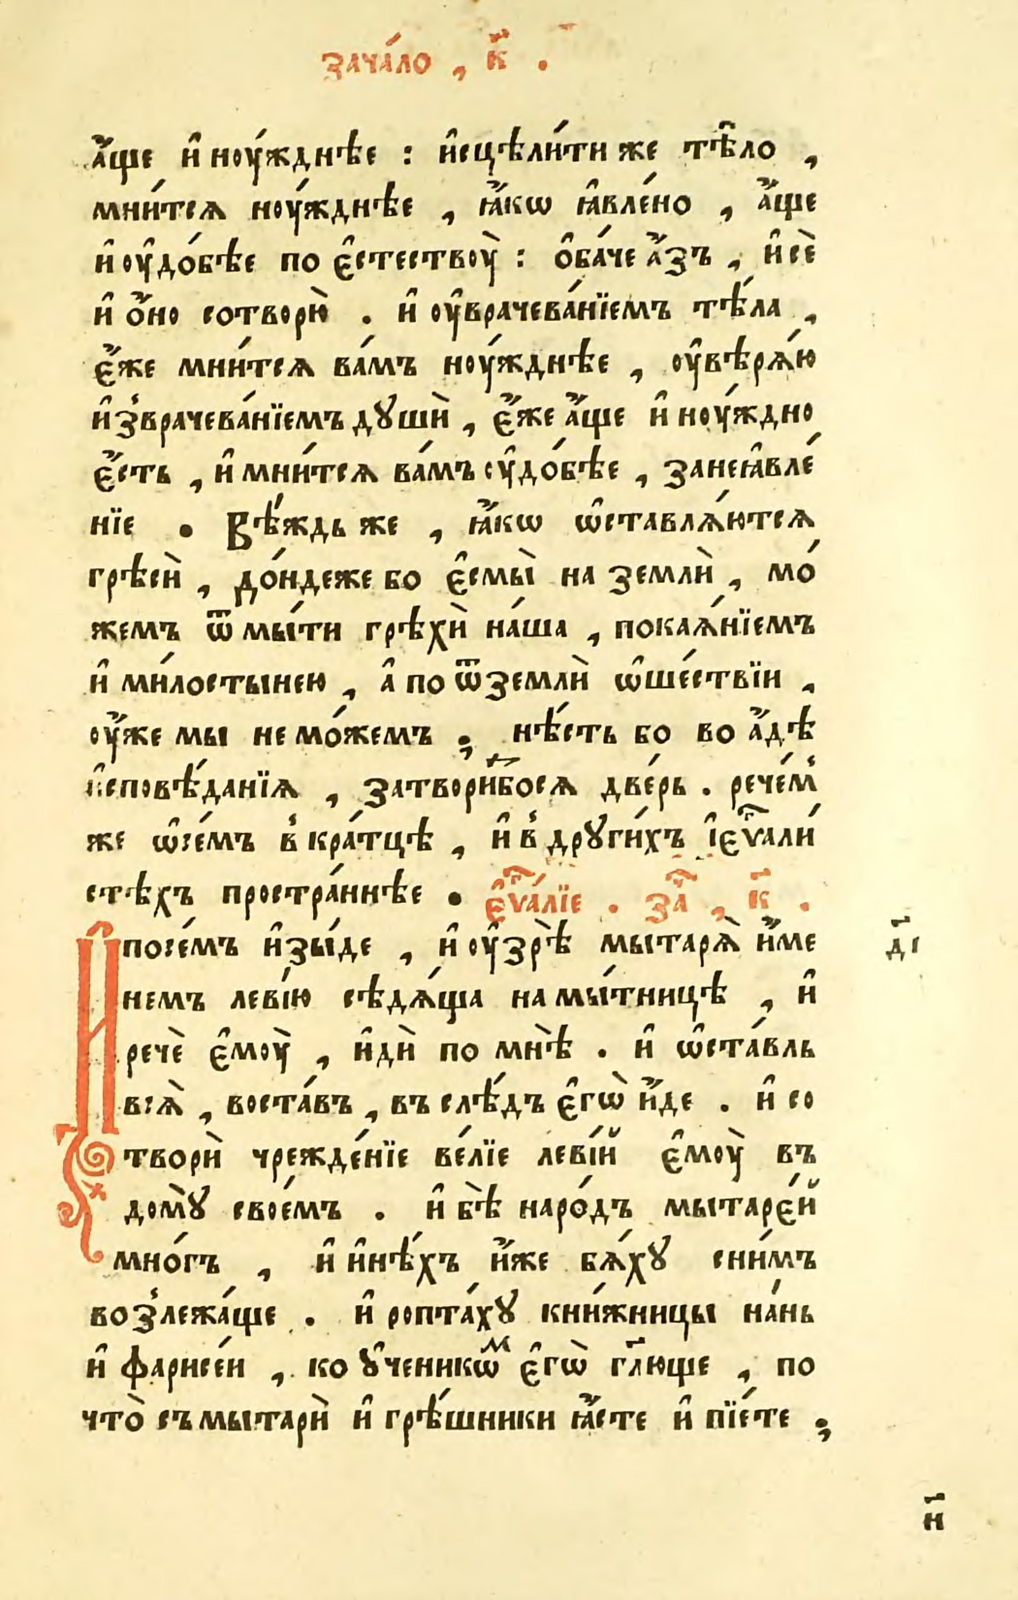 зача́ло , к҃ .
а҆́ще и҆ ноу́жднѣе : и҆сцѣли́ти же тѣ́ло ,
мни́тсѧ ноу́жднѣе , ꙗ҆́кѡ ꙗ҆вле́но , а҆́ще
и҆ оу҆до́бѣе по є҆стествоу̀ : ѻ҆ба́че а҆́зъ , и҆ сѐ
и҆ ѻ҆́но сотворю̀ . и҆ оу҆врачева́нїемъ тѣ́ла ,
є҆́же мни́тсѧ ва́мъ ноу́жднѣе , оу҆вѣрѧ́ю
и҆ з̾врачева́нїемъ дꙋшѝ , є҆́же а҆́ще и҆ ноу́ждно
є҆́сть , и҆ мни́тсѧ ва́мъ оу҆до́бѣе , занеꙗ҆вле́
нїе . Вѣ́ждь же , ꙗ҆́кѡ ѡ҆ставлѧ́ютсѧ
грѣсѝ , до́ндеже бо є҆смы̀ на землѝ , мо́
жемъ ѿ мы́ти грѣхѝ на́ша , покаѧ́нїемъ
и҆ ми́лостынею , а҆ по ѿ землѝ ѡ҆ше́ствїи ,
оу҆́же мы не мо́жемъ . нѣ́сть бо во а҆́дѣ
и҆сповѣ́данїѧ , затвори́босѧ две́рь . рече́м̾
же ѡ҆ се́мъ в̾ кра́тцѣ , и҆ в̾ дрꙋги́хъ і҆є҆ѵⷢ҇али́
стѣхъ простра́ннѣе . є҆ѵⷢ҇а́лїе . заⷱ҇ , к҃ .
И по се́мъ и҆зы́де , и҆ оу҆зрѣ̀ мытарѧ̀ и҆́ме
немъ леві́ю сѣдѧ́ща на мы́тницѣ , и҆
речѐ є҆моу̀ , и҆дѝ по мнѣ̀ . и҆ ѡ҆ста́вль
всѧ̀ , воста́въ , въ слѣ́дъ є҆гѡ̀ и҆́де . и҆ со
творѝ чрежде́нїе ве́лїе леві́й є҆моу̀ въ
домꙋ̀ свое́мъ . и҆ бѣ̀ наро́дъ мытаре́й
мно́гъ , и҆ и҆нѣ́хъ и҆́же бѧ́хꙋ сни́мъ
воз̾лежа́ще . и҆ ропта́хꙋ кни́жницы на́нь
и҆ фарисе́и , ко ᲂу҆ченикѡⷨ є҆гѡ̀ гл҃юще , по
что̀ съ мытарѝ и҆ грѣ́шники ꙗ҆́сте и҆ пїе́те ;
д҃і
н҃